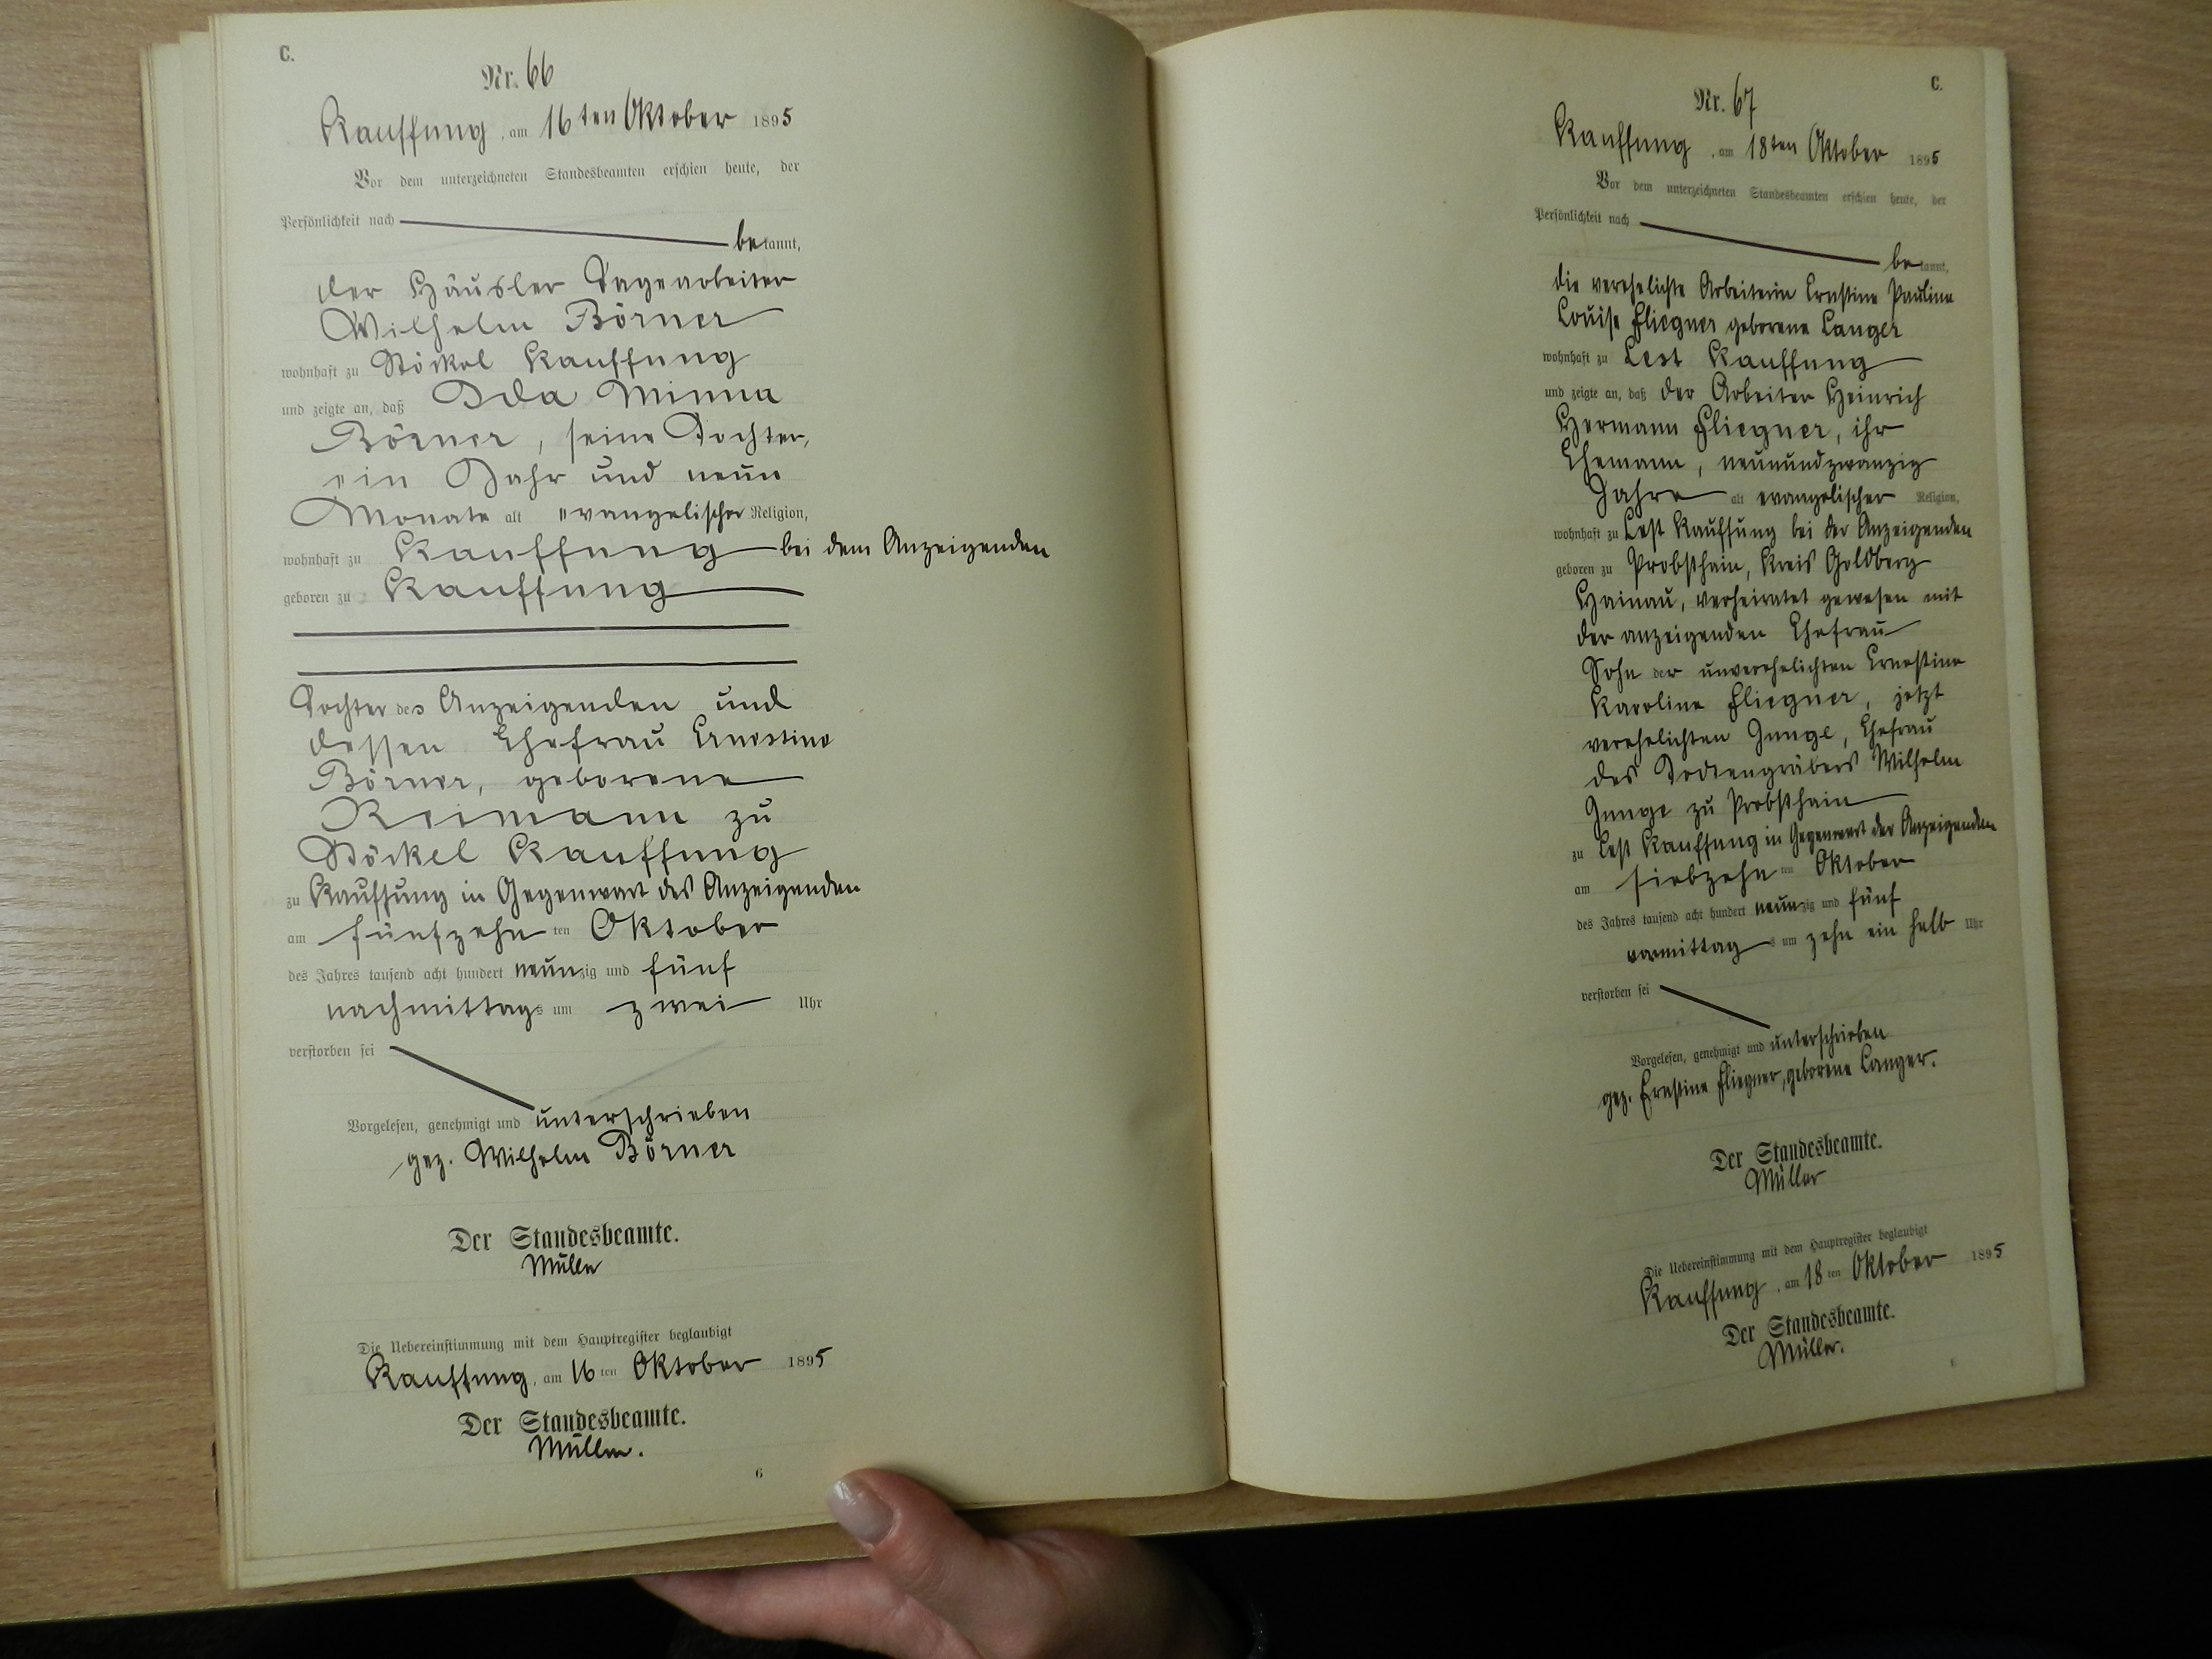 C.
Nr. 66
Kauffung, am 16ten Oktober 1895
Vor dem unterzeichneten Standesbeamten erschien heute, der
Persönlichkeit nach
bekannt,
der Häusler Tagearbeiter
Wilhelm Börner
wohnhaft zu Stöckel Kauffung
und zeigte an, daß Ida Minna
Börner, seine Tochter,
ein Jahr und neun
Monate alt evangelischer Religion,
wohnhaft zu Kauffung bei dem Anzeigenden
geboren zu Kauffung
Tochter des Anzeigenden und
dessen Ehefrau Ernestine
Börner, geborene
Reimann zu
Stöckel Kauffung
zu Kauffung in Gegenwart des Anzeigenden
am fünfzehn ten Oktober
des Jahres tausend acht hundert neunzig und fünf
nachmittags um zwei Uhr
verstorben sei
Vorgelesen, genehmigt und unterschrieben
gez. Wilhelm Börner
Der Standesbeamte.
Müller
Die Uebereinstimmung mit dem Hauptregister beglaubigt
Kauffung, am 16 ten Oktober 1895
Der Standesbeamte.
Müller.
6
C.
Nr. 67
Kauffung, am 18ten Oktober 1895
Vor dem unterzeichneten Standesbeamten erschien heute, der
Persönlichkeit nach
bekannt,
die verehelichte Arbeiterin Ernstine Pauline
Louise Fliegner geborene Langer
wohnhaft zu Lest Kauffung
und zeigte an, daß der Arbeiter Heinrich
Hermann Fliegner, ihr
Ehemann, neunundzwanzig
Jahre alt evangelischer Religion,
wohnhaft zu Lest Kauffung bei der Anzeigenden
geboren zu Probsthain, Kreis Goldberg
Hainau, verheiratet gewesen mit
der anzeigenden Ehefrau
Sohn der unverehelichten Ernestine
Karoline Fliegner, jetzt
verehelichten Junge, Ehefrau
des Todtengräbers Wilhelm
Junge zu Probsthain
zu Lest Kauffung in Gegenwart der Anzeigenden
am siebzehn ten Oktober
des Jahres tausend acht hundert neunzig und fünf
vormittags um zehn ein halb Uhr
verstorben sei
Vorgelesen, genehmigt und unterschrieben
gez. Ernstine Fliegner, geborene Langer.
Der Standesbeamte.
Müller
Die Uebereinstimmung mit dem Hauptregister beglaubigt
Kauffung, am 18 ten Oktober 1895
Der Standesbeamte.
Müller.